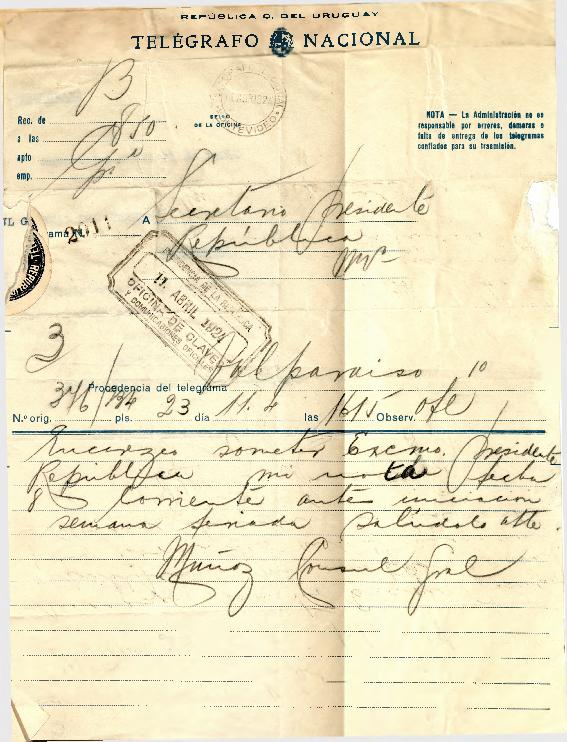 REPÚBLICA O. DEL URUGUAY
TELÉGRAFO NACIONAL
B
Rec. de
a las 1850
apto
emp.
SELLO
DE LA OFICINA
MONTEVIDEO
NOTA — La Administración no es
responsable por errores, demoras o
falta de entrega de los telegramas
confiados para su trasmisión.
2011
A Secretario Presidente
República
Mvo
DE LA REPUBLICA
11 ABRIL 1924
OFICINA DE CLAVE
Y COMUNICACIONES OFICIALES
3
Valparaiso 10
Procedencia del telegrama
N.º orig. 376/134 pls. 23 día 11.4 las 1615 Observ. Ofl
Encarezco someter Excmo. Presidente
República mi nota fecha
8 Corriente ante iniciacion
semana feriada saludolo atte.
Muñoz Consul Gral